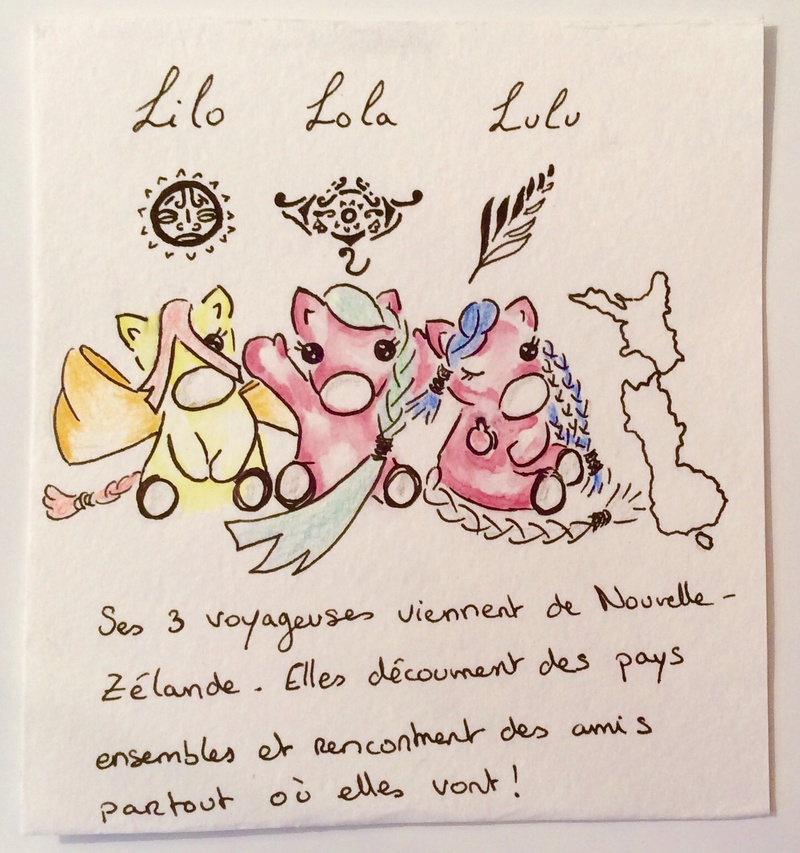 Lilo Lola Lulu
Ses 3 voyageuses viennent de Nouvelle-
Zélande. Elles découvrent des pays
ensembles et rencontrent des amis
partout où elles vont !